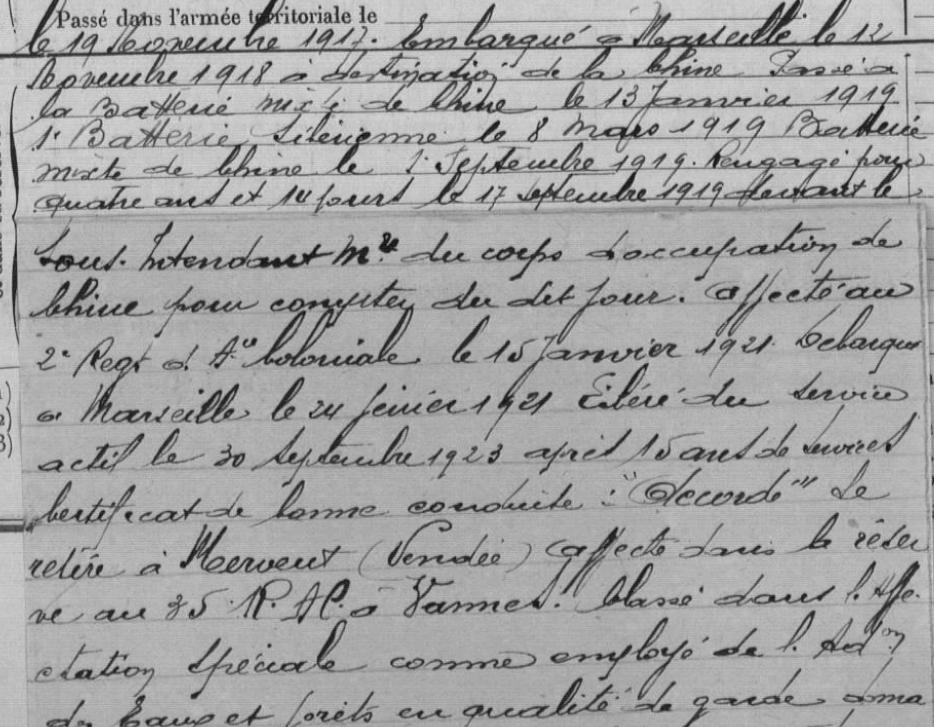 Passé dans l'armée territoriale le
le 19 Novembre 1917. Embarqué à Marseille le 12
Novembre 1918 à destination de la Chine Passé à
la Batterie mixte de Chine le 13 Janvier 1919
1e Batterie Sibérienne le 8 Mars 1919 Batterie
mixte de Chine le 1e Septembre 1919. Rengagé pour
quatre ans et 14 jours le 17 septembre 1919 devant le
Sous-Intendant Mre du corps d'occupation de
Chine pour compter du dit jour. Affecté au
2e Regt d'Aie Coloniale le 15 Janvier 1921. Debarqué
à Marseille le 24 février 1921 Libéré du service
actif le 30 Septembre 1923 après 15 ans de services
Certificat de bonne conduite : "Accordé" Se
retire à Mervent (Vendée) Affecté dans la réser
ve au 35 R.A.C. à Vannes. Classé dans l'Affe-
ctation Spéciale comme employé de l'Adon
des Eaux et forêts en qualité de garde doma